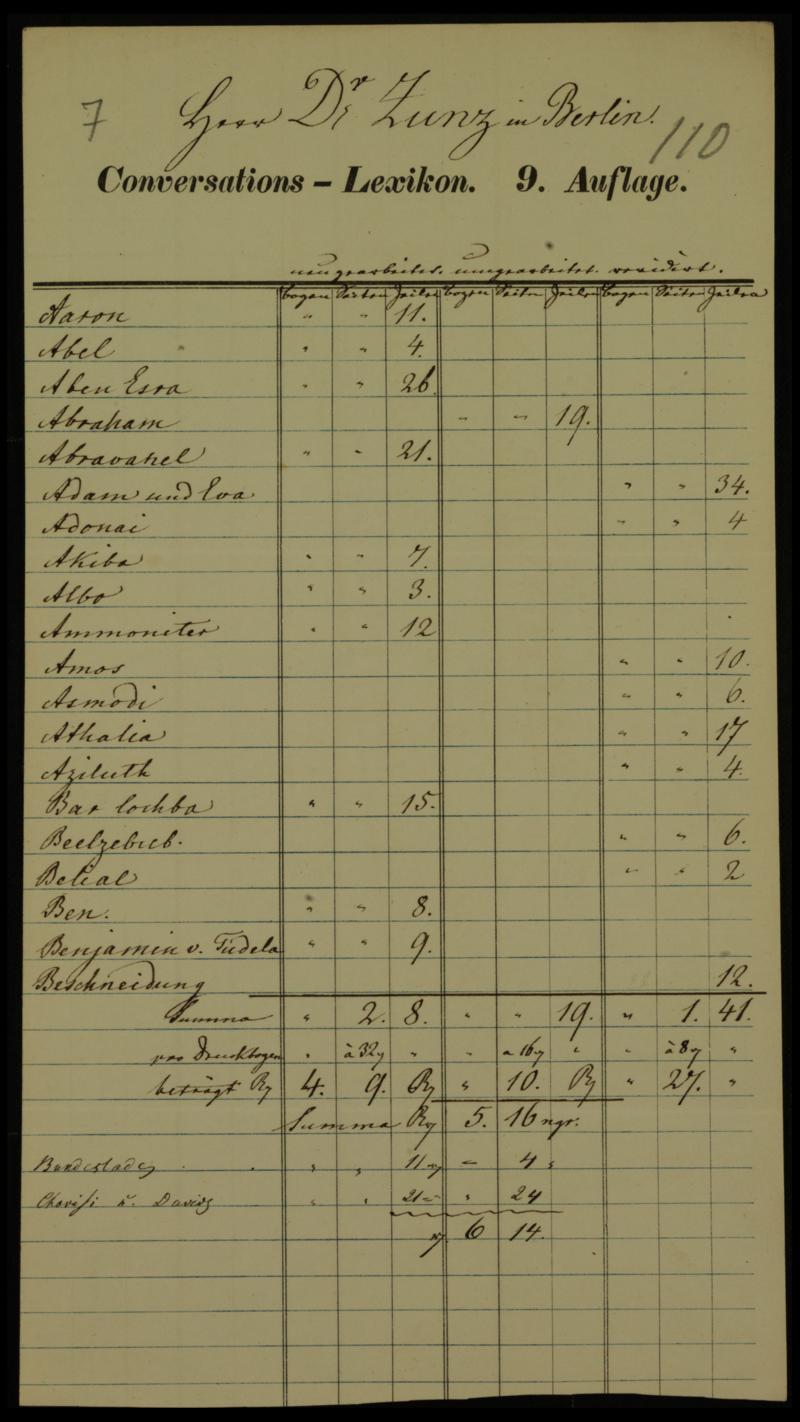 7
Herr Dr Zunz in Berlin.
110
Conversations – Lexikon. 9. Auflage.
neu gearbeitet. umgearbeitet. revidirt.
Bogen Seiten Zeilen Bogen Seiten Zeilen Bogen Seiten Zeilen
Aaron " " 11.
Abel " " 4.
Aben Esra " " 26.
Abraham " " 19.
Abravanel " " 21.
Adam und Eva " " 34.
Adonai " " 4
Akiba " " 7.
Albo " " 3.
Ammoniter " " 12
Amos " " 10.
Asmodi " " 6.
Athalia " " 17
Aziluth " " 4.
Bar Cochba " " 15.
Beelzebub. " " 6.
Belial " " 2
Ben. " " 8.
Benjamin v. Tudela " " 9.
Beschneidung 12.
Summa " 2. 8. " " 19. " 1. 41.
pro Druckbogen " à 32 " " à 16 " " à 8 "
beträgt 4. 9. " 10. " 27. "
Summa 5. 16 ngr.
Bundeslade " " 11 – 4 "
" " 21 " 24
6 14.